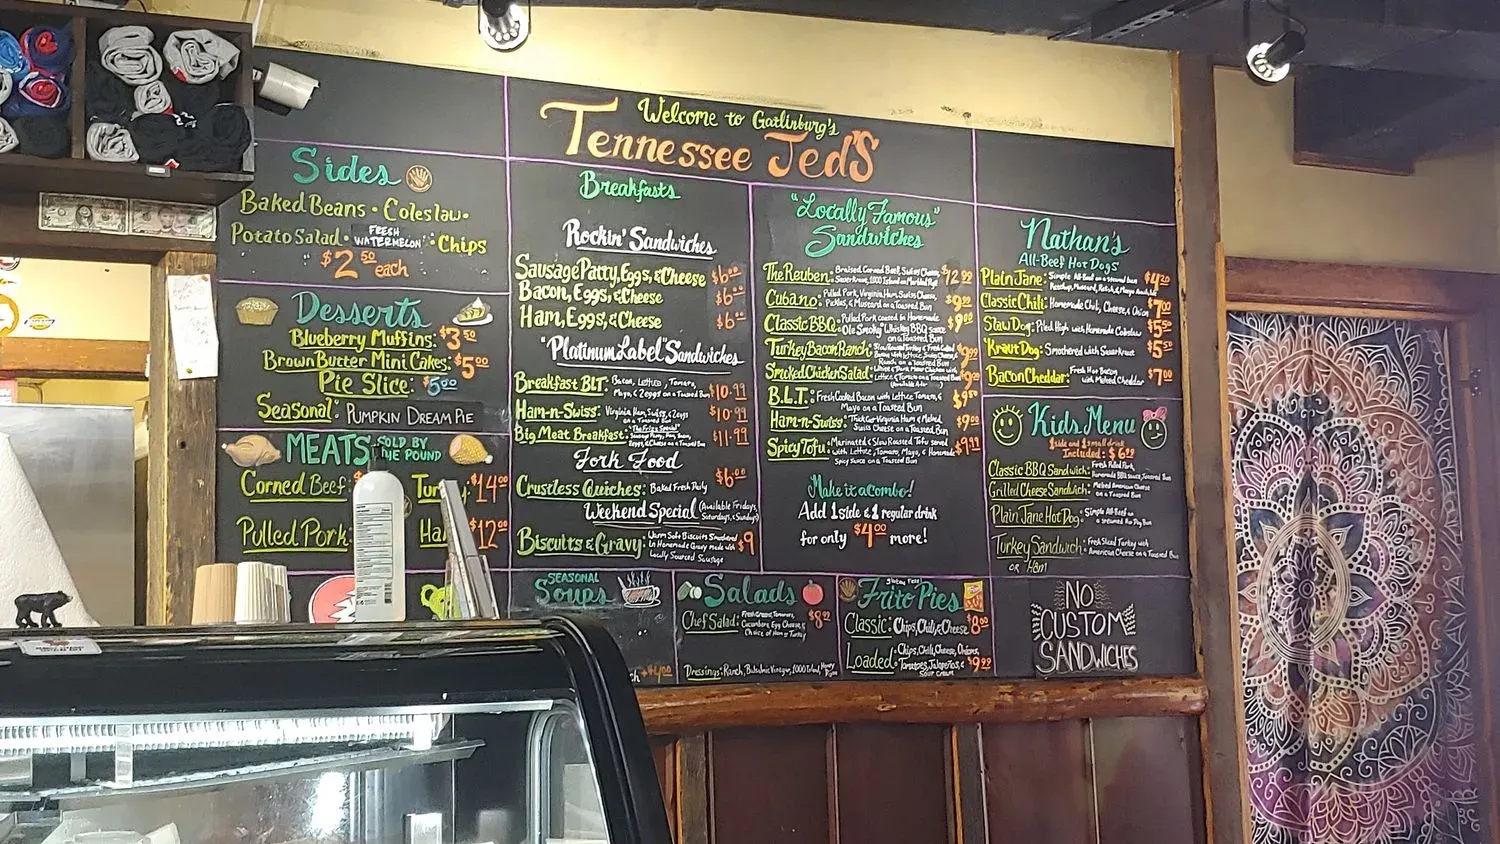 Welcome to Gatlinburg's
Tennessee Jed's
Sides
Baked Beans • Coleslaw •
Potato Salad • FRESH WATERMELON • Chips
$2.50 each
Desserts
Blueberry Muffins: $3.50
Brown Butter Mini Cakes: $5.00
Pie Slice: $5.00
Seasonal: PUMPKIN DREAM PIE
MEATS SOLD BY THE POUND
Corned Beef:
$14.00
Pulled Pork:
$12.00
Breakfasts
Rockin' Sandwiches
Sausage Patty, Eggs, & Cheese $6.00
Bacon, Eggs, & Cheese $6.00
Ham, Eggs, & Cheese $6.00
"Platinum Label" Sandwiches
Breakfast BLT: Bacon, Lettuce, Tomato, $10.99
Mayo, & 2 eggs on a Toasted Bun
Ham-n-Swiss: Virginia Ham, Swiss, & 2 eggs $10.99
on a Toasted Bun
Big Meat Breakfast: $11.99
Fork Food
Crustless Quiches: Baked Fresh Daily $6.00
Weekend Special (Available Fridays, Saturdays, & Sundays)
Biscuits & Gravy: Warm Soft Biscuits Smothered $9
in Homemade Gravy made with
Locally Sourced Sausage
"Locally Famous"
Sandwiches
The Reuben: Braised Corned Beef, Swiss Cheese, $12.99
Sauerkraut, 1000 Island on Marbled Rye
Cubano: Pulled Pork, Virginia Ham, Swiss, Cheese, $9.99
Pickles, & Mustard on a Toasted Bun
Classic BBQ: Pulled Pork coated in Homemade $9.00
Ole Smoky Whiskey BBQ sauce
on a Toasted Bun
Turkey Bacon Ranch: $9.99
Smoked Chicken Salad: $9.99
B.L.T.: Fresh Cooked Bacon with Lettuce, Tomato, & $9.50
Mayo on a Toasted Bun
Ham-n-Swiss: Thick Cut Virginia Ham & Melted $9.00
Swiss Cheese on a Toasted Bun
Spicy Tofu: Marinated & Slow Roasted Tofu served $9.99
with Lettuce, Tomato, Mayo, & Homemade
Spicy Sauce on a Toasted Bun
Make it a Combo!
Add 1 side & 1 regular drink
for only $4.00 more!
Nathan's
All-Beef Hot Dogs
Plain Jane: Simple All-Beef on a steamed bun $4.20
Ketchup, Mustard, Relish, & Mayo Available
Classic Chili: Homemade Chili, Cheese, & Onion $7.00
Slaw Dog: Piled High with Homemade Coleslaw $5.50
'Kraut Dog: Smothered with Sauerkraut $5.50
Bacon Cheddar: Fresh Hot Bacon $7.00
with Melted Cheddar
Kids Menu
1 side and 1 small drink
Included: $6.99
Classic BBQ Sandwich: Fresh Pulled Pork,
Homemade BBQ sauce, Toasted Bun
Grilled Cheese Sandwich: Melted American Cheese
on a Toasted Bun
Plain Jane Hot Dog: Simple All-Beef on
a steamed Hot Dog Bun
Turkey Sandwich: Fresh Sliced Turkey with
OR HAM American Cheese on a Toasted Bun
SEASONAL
Soups
$4.00
Salads
Chef Salad: Fresh Greens, Tomatoes, $8.99
Cucumbers, Egg, Cheese, &
Choice of Ham or Turkey
Dressings: Ranch, Balsamic Vinegar, 1000 Island, Honey
Gluten Free!
Frito Pies
Classic: Chips, Chili, & Cheese $8.00
Loaded: Chips, Chili, Cheese, Onions, $9.99
Tomatoes, Jalapeños, &
Sour Cream
NO
CUSTOM
SANDWICHES